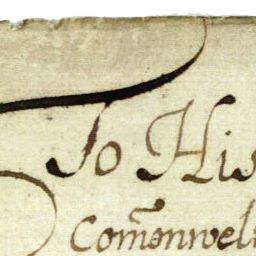 To His
Comonwel